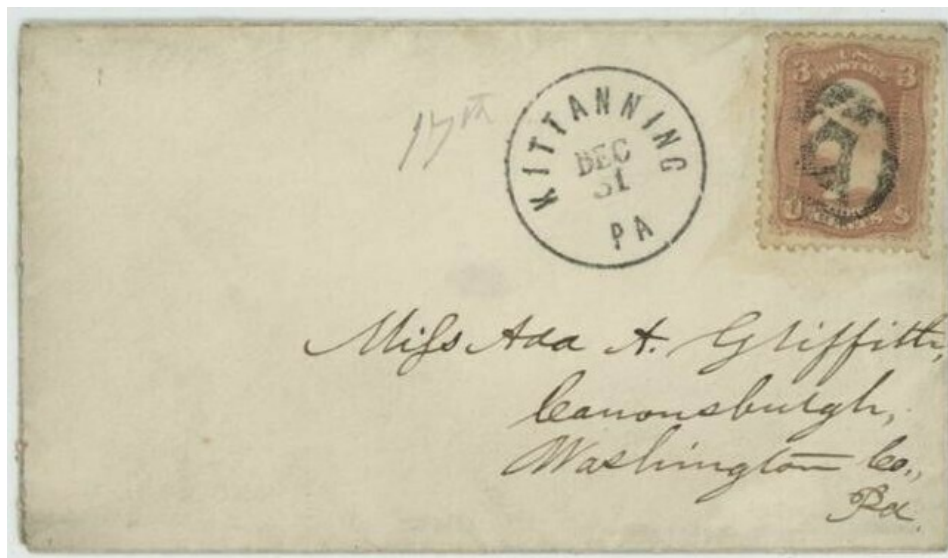 17th
KITTANNING
DEC
31
PA
3 3
U.S.
POSTAGE
U S
Miss Ada A. Griffith,
Canonsburgh,
Washington Co.,
Pa.